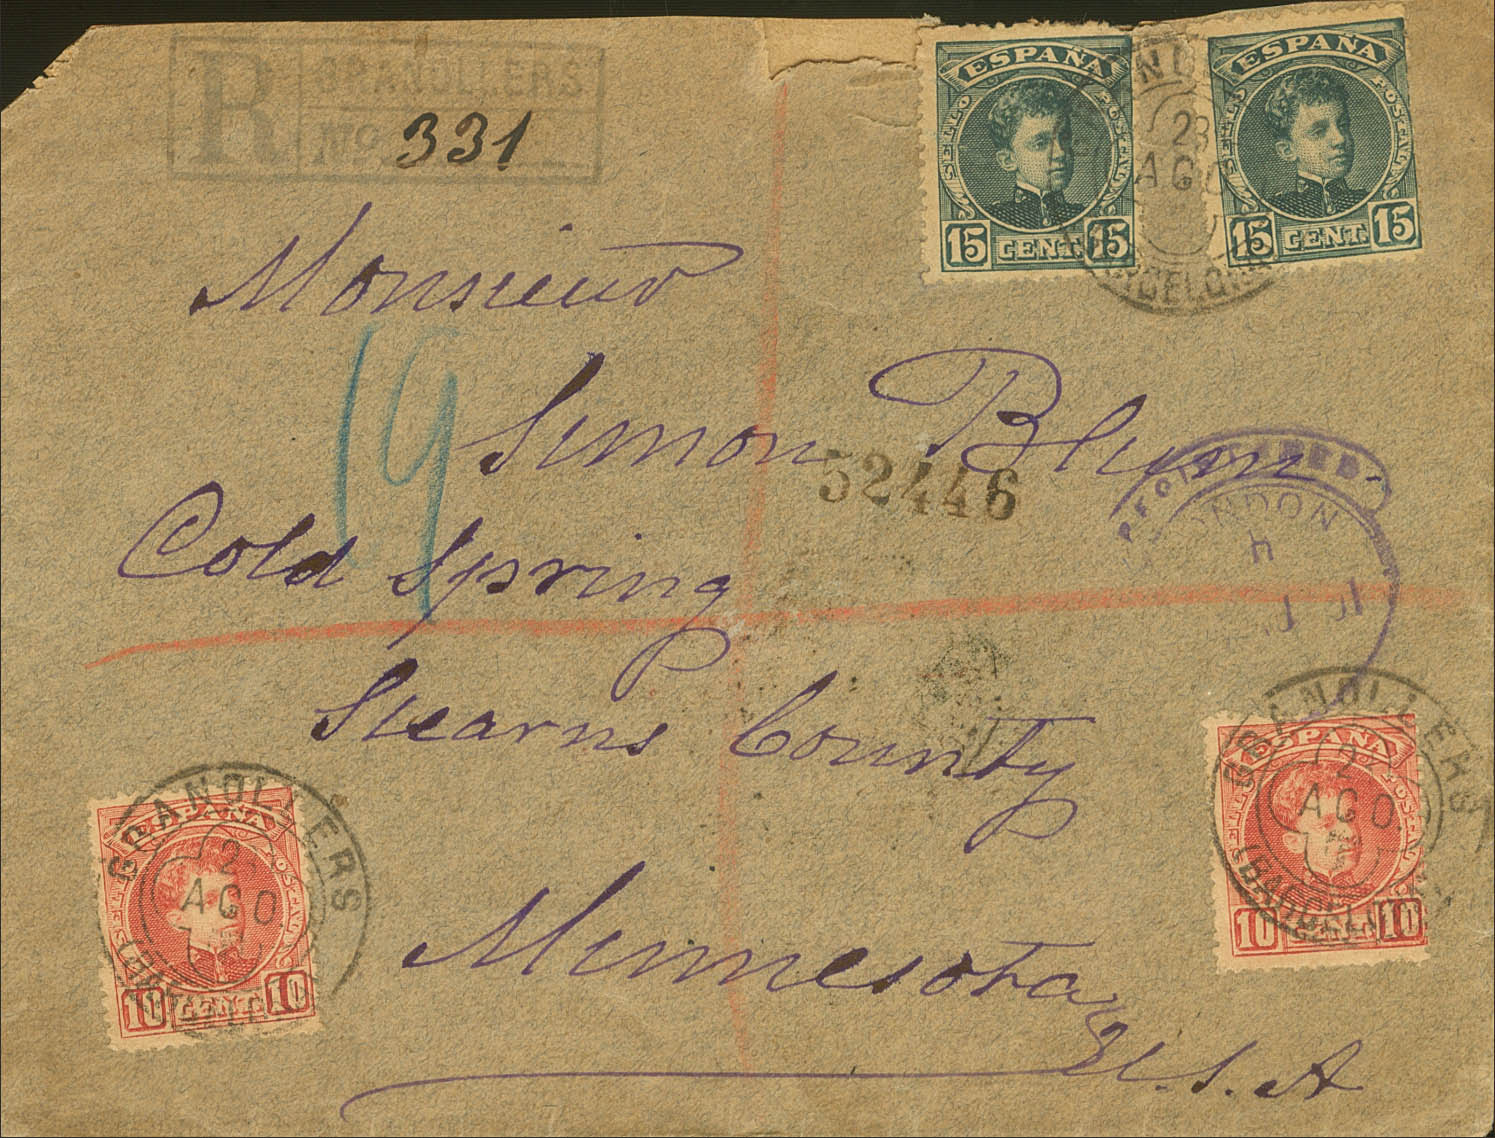 R GRANOLLERS
No. 331
ESPAÑA
SELLO POSTAL
15 CENT. 15
ESPAÑA
SELLO POSTAL
15 CENT. 15
AGO
BARCELONA
Monsieur
19
Simon Blum
52446
REGISTERED
LONDON
Cold Spring
Stearns County
GRANOLLERS
2
AGO
ESPAÑA
SELLO POSTAL
10 CENT. 10
GRANOLLERS
2
AGO.
(BARCELONA)
ESPAÑA
SELLO POSTAL
10 CENT. 10
Minnesota
U.S.A